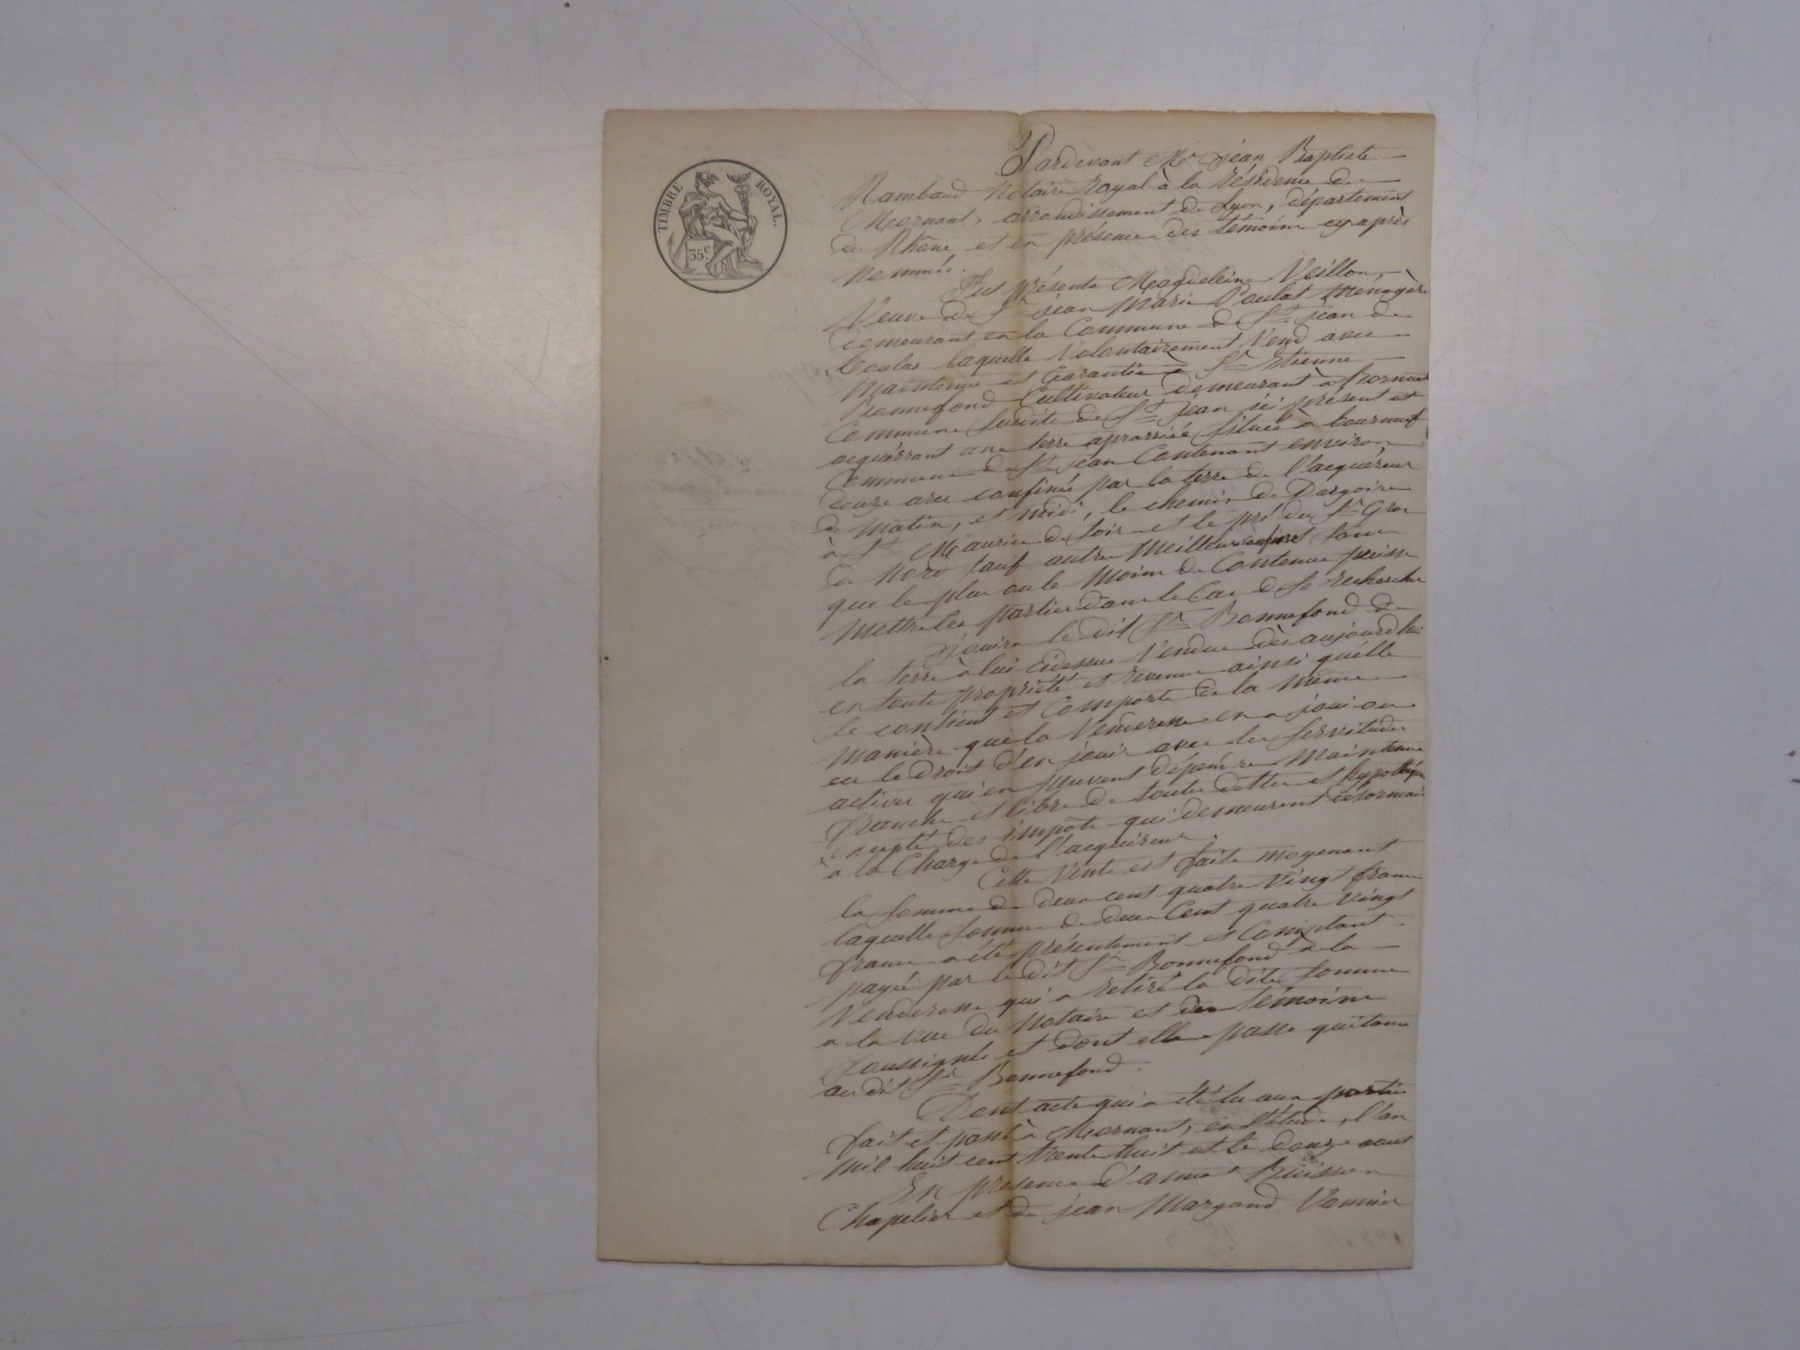 TIMBRE ROYAL.
35 c.
Pardevant Me jean Baptiste
Rambaud Notaire royal à la résidence de
Mornant, arrondissement de Lyon, département
du Rhône, et en présence des témoins cyaprès
nommés.
Fut présente Magdeleine Veillon,
Veuve de Sr jean Marie Poulat Menagère
demeurant en la Commune de St jean de
toulas laquelle volontairement Vend avec
Maintenue et Garantie à Sr Etienne
Bonnefond Cultivateur demeurant à
Commune Susdite de St jean ici présent et
acquérant une terre située à
Commune de St jean Contenant environ
douze ares confinée par la terre de l'acquéreur
de matin, et midi, le chemin de Dargoire
à St Maurice de soir et le pré du Sr Gros
de Nord sauf autres Meilleurs confins sans
que le plus ou le moins de Contenue puisse
Mettre les parties dans le Cas de se rechercher
jouira le dit Sr Bonnefond de
la terre à lui cidessus Vendue dès aujourd'hui
en toute propriété et revenus ainsi quélle
se contient et Comporte de la même
manière que la Venderesse en a joui ou
eu le droit d'en jouir avec les servitudes
actives qui en peuvent dépendre Maintenue
franche et libre de toutes dettes et hypothèques
excepté des impôts qui demeurent désormais
à la Charge de l'acquéreur.
Cette Vente est faite moyenant
la somme de deux cent quatre Vingt francs
laquelle somme de deux Cent quatre Vingt
francs a été présentement et Comptant
payée par le dit Sr Bonnefond à la
Venderesse qui a retiré la dite somme
a la vue du Notaire et des témoins
soussignés et dont elle passe quitance
au dit Sr Bonnefond.
Dont acte qui a été lu aux parties
fait et passé à Mornant, en l'étude, l'an
mil huit cent trente huit et le douze aout
En présence d'
Chapelier et de jean Margand Vannier